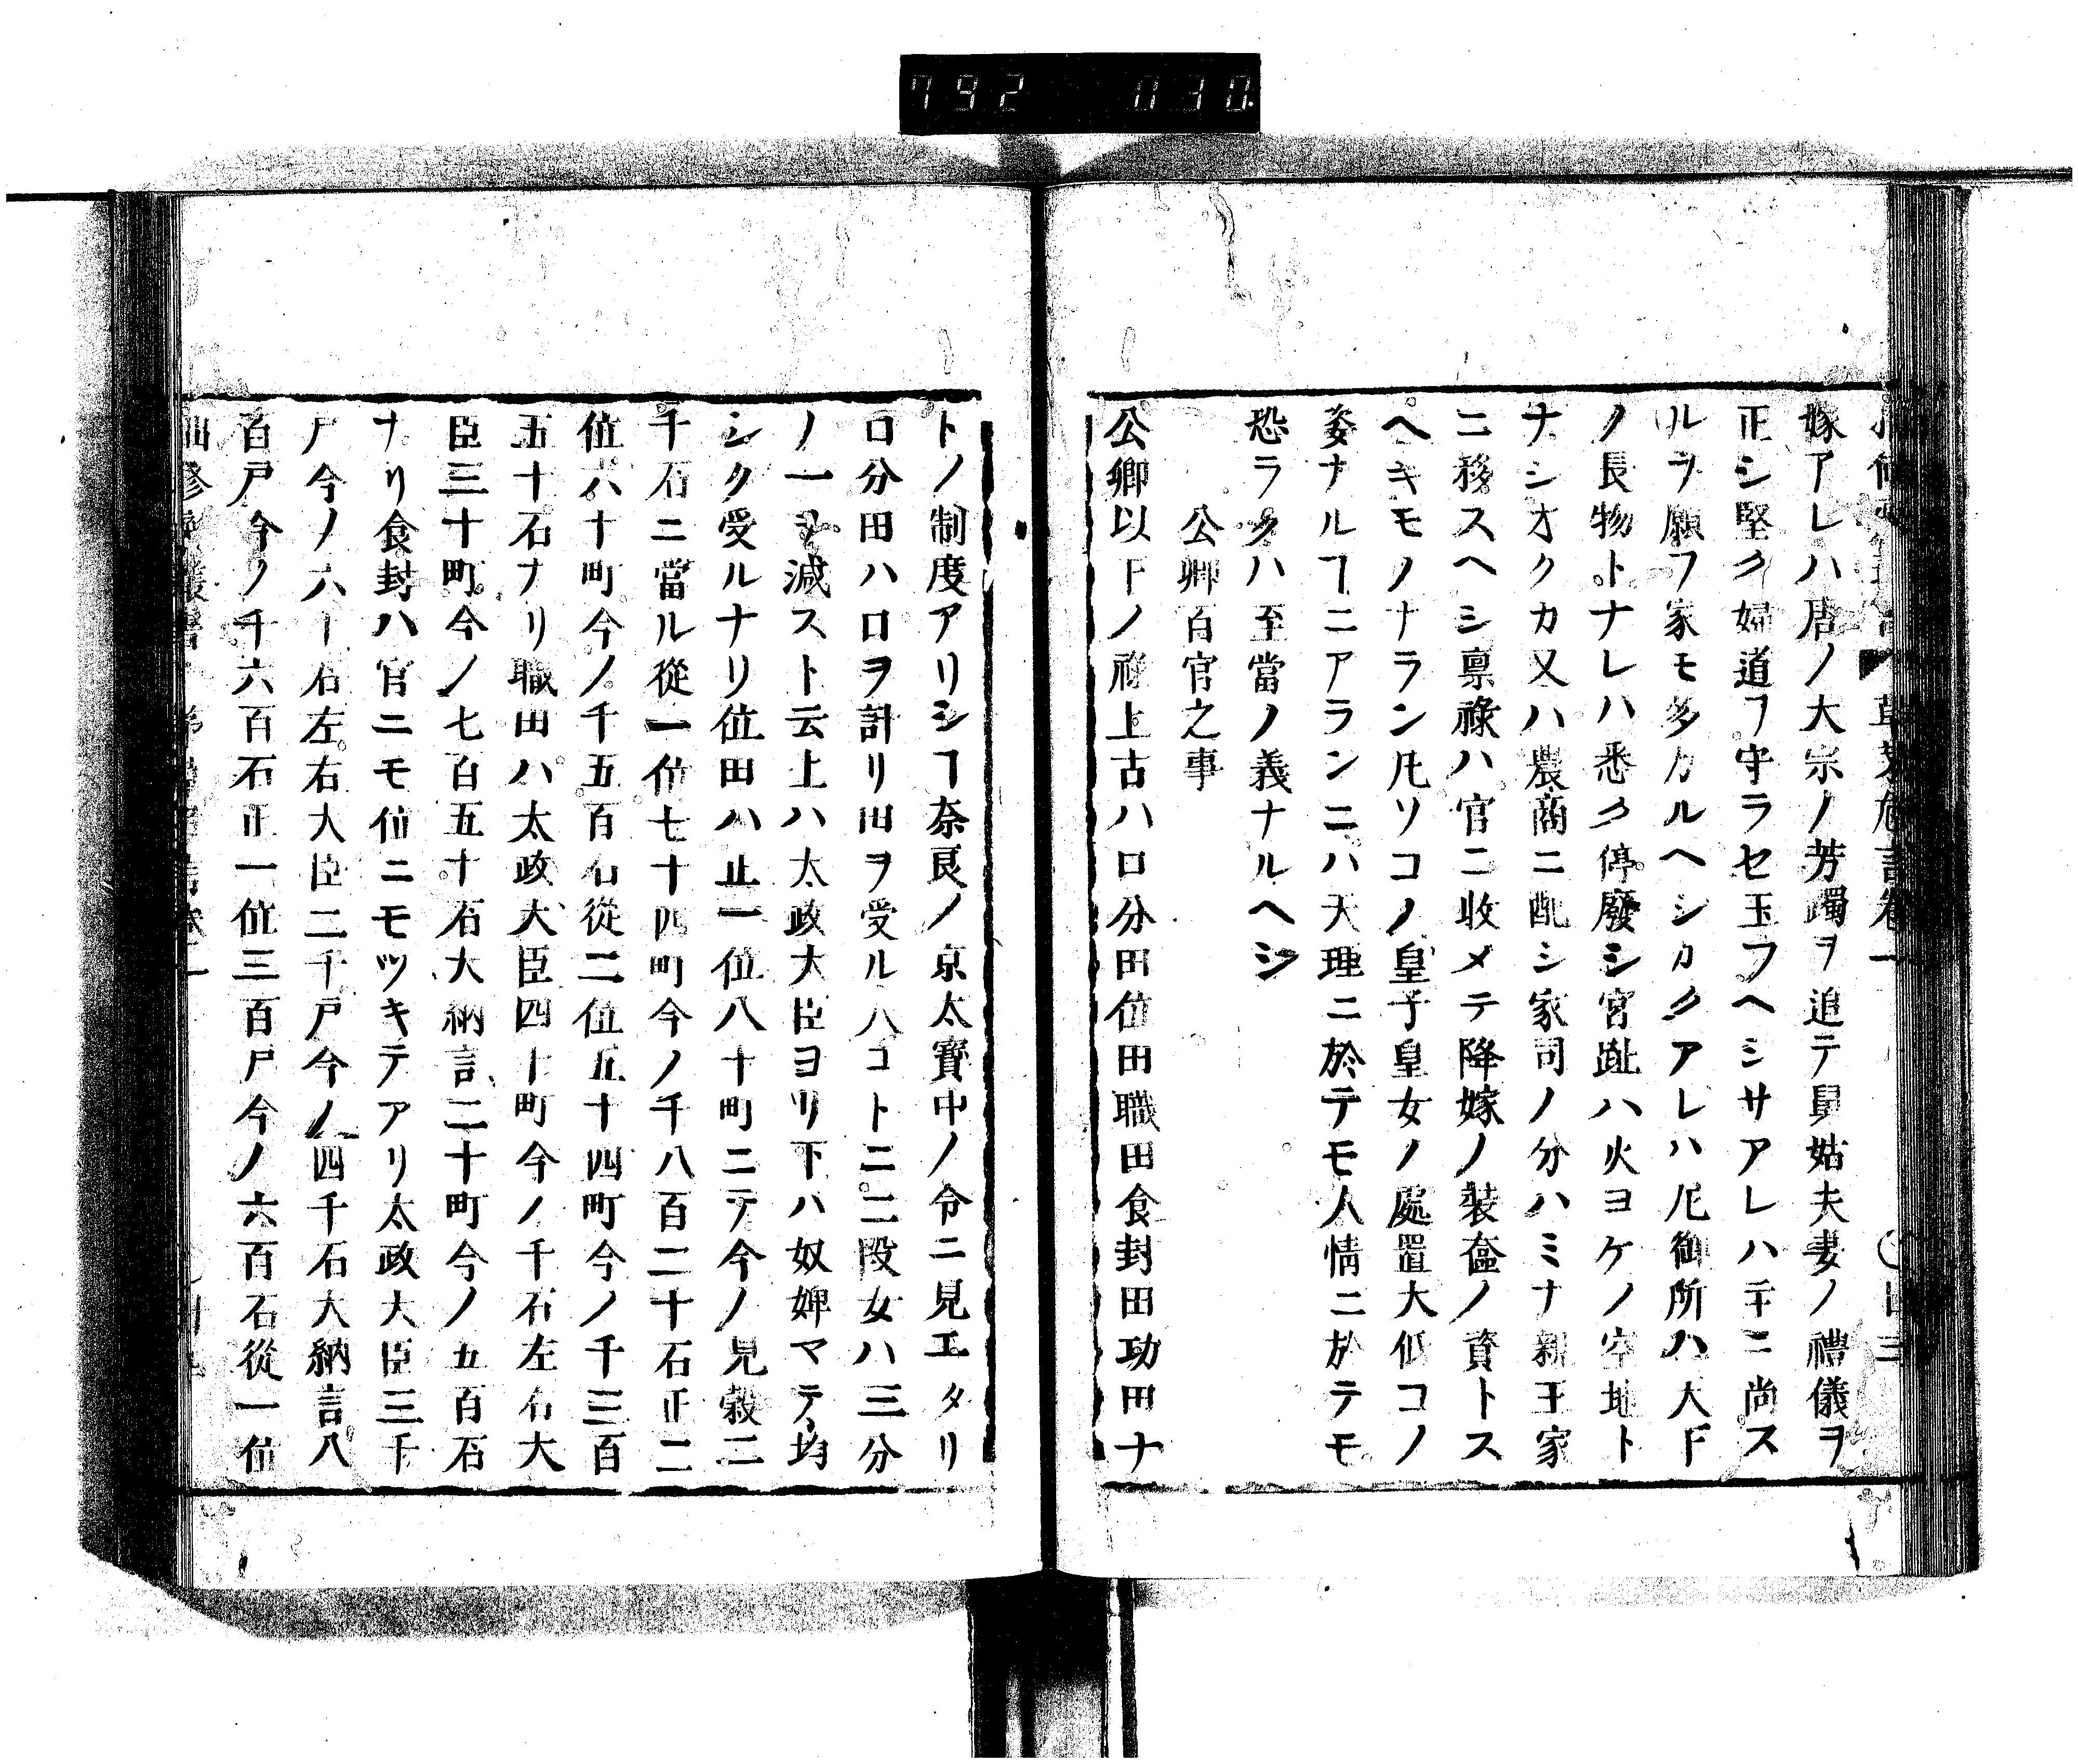 792 030
草茅危言卷一
嫁アレハ唐ノ大宗ノ芳躅ヲ追テ舅姑夫妻ノ禮儀ヲ
正シ堅ク婦道ヲ守ラセ玉フヘシサアレハ幸ニ尚ス
ルヲ願フ家モ多カルヘシカクアレハ尼御所ハ大下
ノ長物トナレハ悉ク停廢シ宮趾ハ火ヨケノ空地ト
ナシオクカ又ハ農商ニ配シ家司ノ分ハミナ親王家
ニ移スヘシ禀祿ハ官ニ收メテ降嫁ノ裝奩ノ資トス
ヘキモノナラン凡ソコノ皇子皇女ノ處置大低コノ
姿ナルヿニアランニハ天理ニ於テモ人情ニ於テモ
恐ラクハ至當ノ義ナルヘシ
公卿百官之事
公卿以下ノ祿上古ハ口分田位田職田食封田功田ナ
トノ制度アリシヿ奈良ノ京太寶中ノ令ニ見エタリ
口分田ハ口ヲ計リ田ヲ受ル八コトニ二段女ハ三分
ノ一ヲ減スト云上ハ太政大臣ヨリ下ハ奴婢マテ均
シク受ルナリ位田ハ正一位八十町ニテ今ノ見穀二
千石ニ當ル從一位七十四町今ノ千八百二十石正二
位六十町今ノ千五百石從二位五十四町今ノ千三百
五十石ナリ職田ハ太政大臣四十町今ノ千石左右大
臣三十町今ノ七百五十石大納言二十町今ノ五百石
ナリ食封ハ官ニモ位ニモツキテアリ太政大臣三千
戸今ノ六千石左右大臣二千戸今ノ四千石大納言八
百戸今ノ千六百石正一位三百戸今ノ六百石從一位